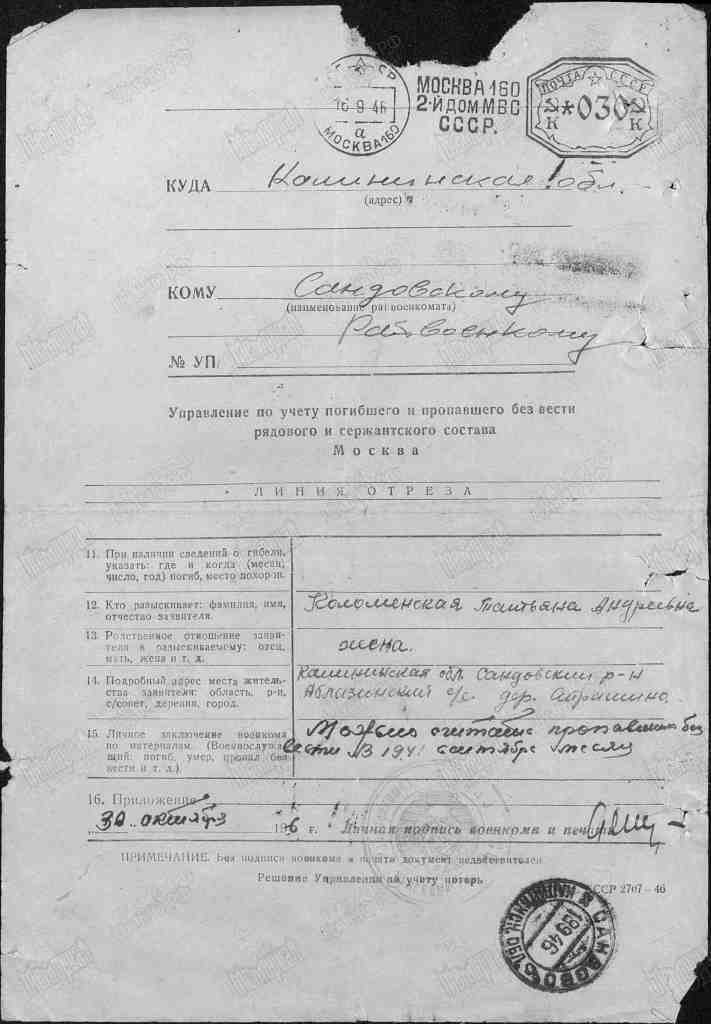 МОСКВА 160
2-Й ДОМ МВС
СССР.
ПОЧТА СССР
К *030 К
16 9 46
а
МОСКВА 160
КУДА Калининская обл.
(адрес)
КОМУ Сандовскому
(наименование райвоенкомата)
Райвоенкому
№ УП
Управление по учету погибшего и пропавшего без вести
рядового и сержантского состава
Москва
ЛИНИЯ ОТРЕЗА
11. При наличии сведений о гибели,
указать: где и когда (месяц,
число, год) погиб, место похорон.
12. Кто разыскивает: фамилия, имя,
отчество заявителя.
Коломенская Татьяна Андреевна
13. Родственное отношение заяви-
теля к разыскиваемому: отец,
мать, жена и т. д.
жена.
14. Подробный адрес места житель-
ства заявителя: область, р-н,
с/совет, деревня, город.
Калининская обл. Сандовский р-н
с/с дер.
15. Личное заключение военкома
по материалам. (Военнослужа-
щий: погиб, умер, пропал без
вести и т. д.)
Можно считать пропавшим без
вести в 1941 сентябре месяц
16. Приложение
30 октября 1946 г. Личная подпись военкома и печать
ПРИМЕЧАНИЕ. Без подписи военкома и печати документ недействителен
Решение Управления по учету потерь
ССР 2707-46
САНДОВО
19 9 46